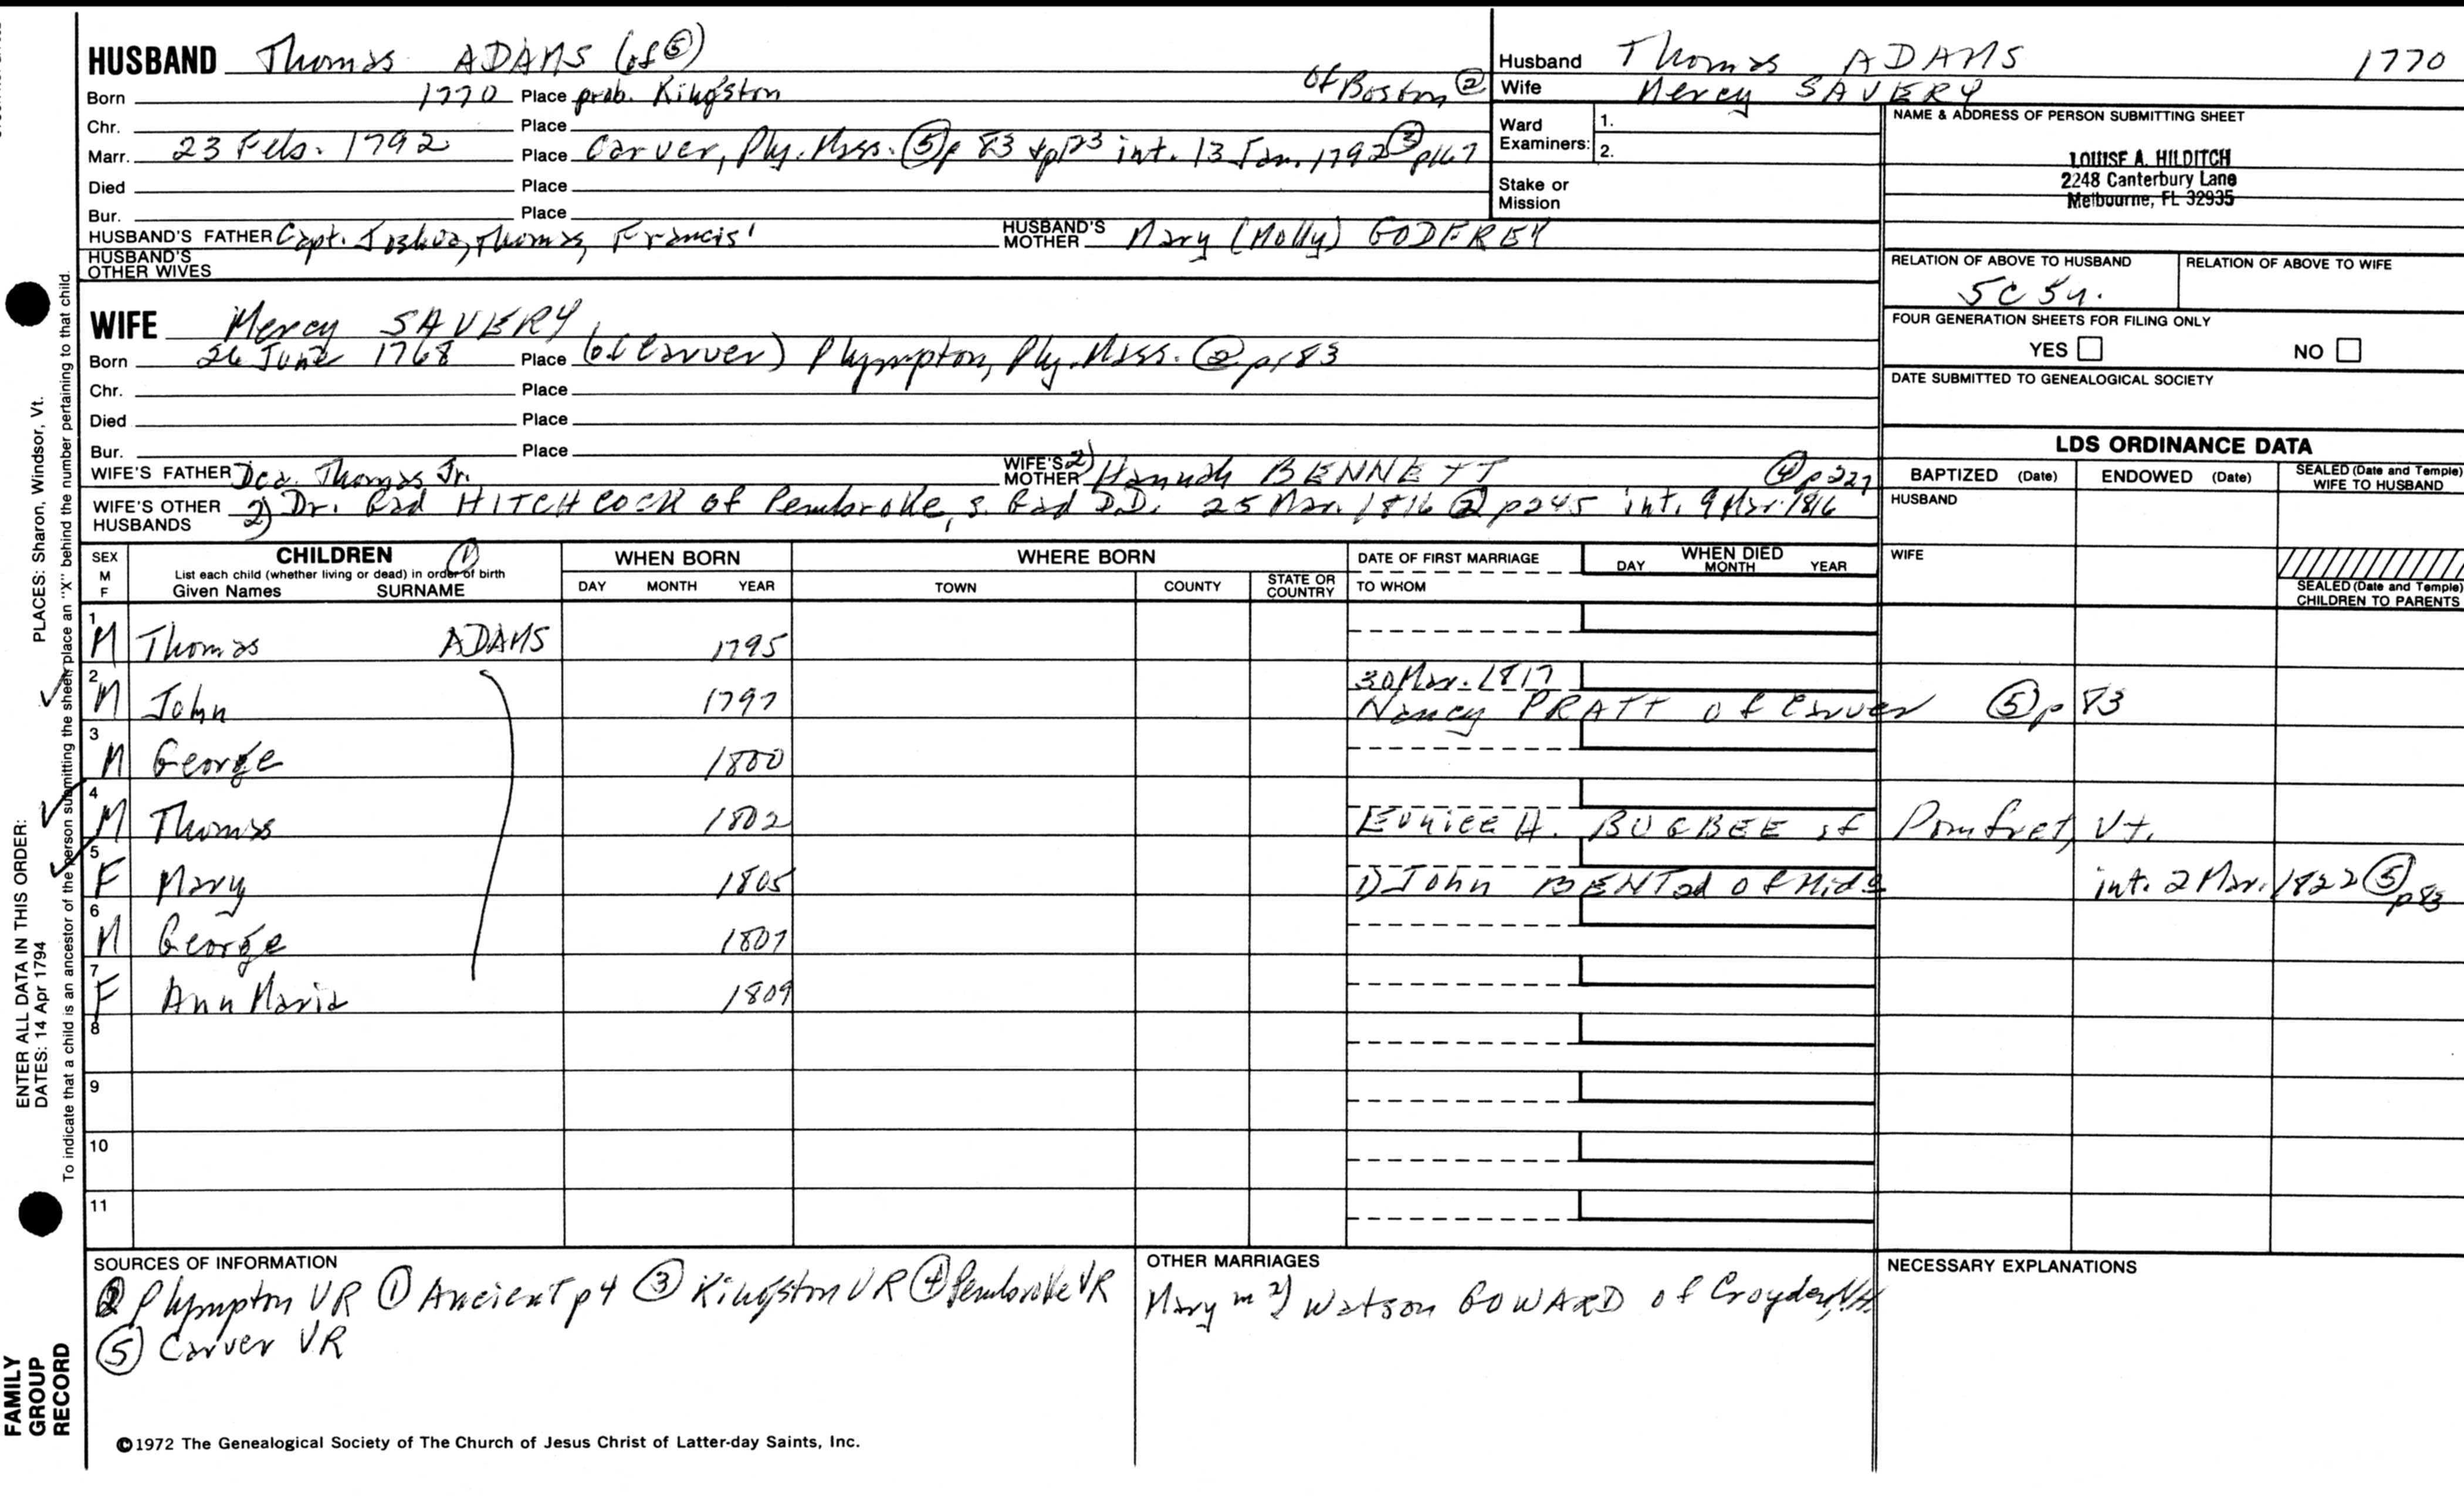 HUSBAND Thomas ADAMS (of ⑤)
Born 1770 Place prob. Kingston of Boston ②
Chr. Place
Marr. 23 Feb. 1792 Place Carver, Ply. Mass. ⑤ p 83 + p123 int. 13 Jan. 1792 ③ p167
Died Place
Bur. Place
HUSBAND'S FATHER Capt. Joshua, Thomas, Francis¹ HUSBAND'S MOTHER Mary (Molly) GODFREY
HUSBAND'S OTHER WIVES
Husband Thomas ADAMS 1770
Wife Mercy SAVERY
Ward Examiners: 1.
2.
Stake or Mission
NAME & ADDRESS OF PERSON SUBMITTING SHEET
LOUISE A. HILDITCH
2248 Canterbury Lane
Melbourne, FL 32935
RELATION OF ABOVE TO HUSBAND RELATION OF ABOVE TO WIFE
5C 5
FOUR GENERATION SHEETS FOR FILING ONLY
YES NO
DATE SUBMITTED TO GENEALOGICAL SOCIETY
WIFE Mercy SAVERY
Born 26 June 1768 Place (of Carver) Plympton, Ply. Mass. ② p183
Chr. Place
Died Place
Bur. Place
WIFE'S FATHER Dea. Thomas Jr. WIFE'S MOTHER 2) Hannah BENNETT ④ p227
WIFE'S OTHER HUSBANDS 2) Dr. Gad HITCHCOCK of Pembroke, s. Gad D.D. 25 Mar. 1816 ② p245 int. 9 Mar. 1816
LDS ORDINANCE DATA
BAPTIZED (Date) ENDOWED (Date) SEALED (Date and Temple) WIFE TO HUSBAND
HUSBAND
WIFE
SEALED (Date and Temple) CHILDREN TO PARENTS
SEX M F CHILDREN ① WHEN BORN WHERE BORN DATE OF FIRST MARRIAGE WHEN DIED
List each child (whether living or dead) in order of birth
Given Names SURNAME DAY MONTH YEAR TOWN COUNTY STATE OR COUNTRY TO WHOM DAY MONTH YEAR
1 M Thomas ADAMS 1795
2 M John 1797 30 Mar. 1817
Nancy PRATT of Carver ⑤ p 83
3 M George 1800
4 M Thomas 1802 Eunice H. BUGBEE of Pomfret, Vt.
5 F Mary 1805 1) John BENT 2d of Mid int. 2 Mar. 1822 ⑤ p83
6 M George 1807
7 F Ann Maria 1809
8
9
10
11
SOURCES OF INFORMATION
② Plympton VR ① Ancient p4 ③ Kingston VR ④ Pembroke VR
⑤ Carver VR
OTHER MARRIAGES
Mary m 2) Watson GOWARD of Croydon, NH.
NECESSARY EXPLANATIONS
©1972 The Genealogical Society of The Church of Jesus Christ of Latter-day Saints, Inc.
FAMILY GROUP RECORD
ENTER ALL DATA IN THIS ORDER:
DATES: 14 Apr 1794
PLACES: Sharon, Windsor, Vt.
To indicate that a child is an ancestor of the person submitting the sheet, place an "X" behind the number pertaining to that child.